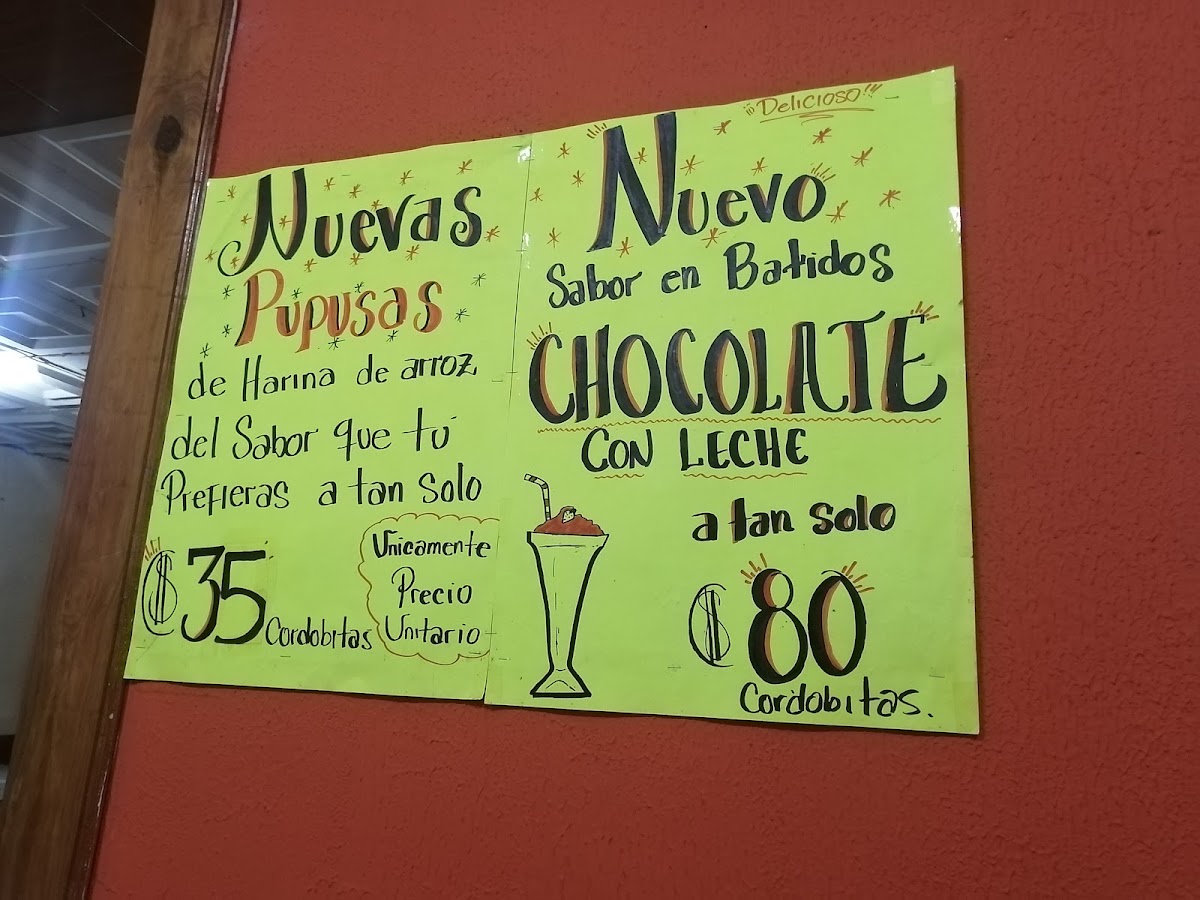 Nuevas
Pupusas
de Harina de arroz,
del Sabor que tú
Prefieras a tan solo
$35 Cordobitas
Unicamente
Precio
Unitario
¡¡Delicioso!!
Nuevo
Sabor en Batidos
CHOCOLATE
CON LECHE
a tan solo
$80
Cordobitas.